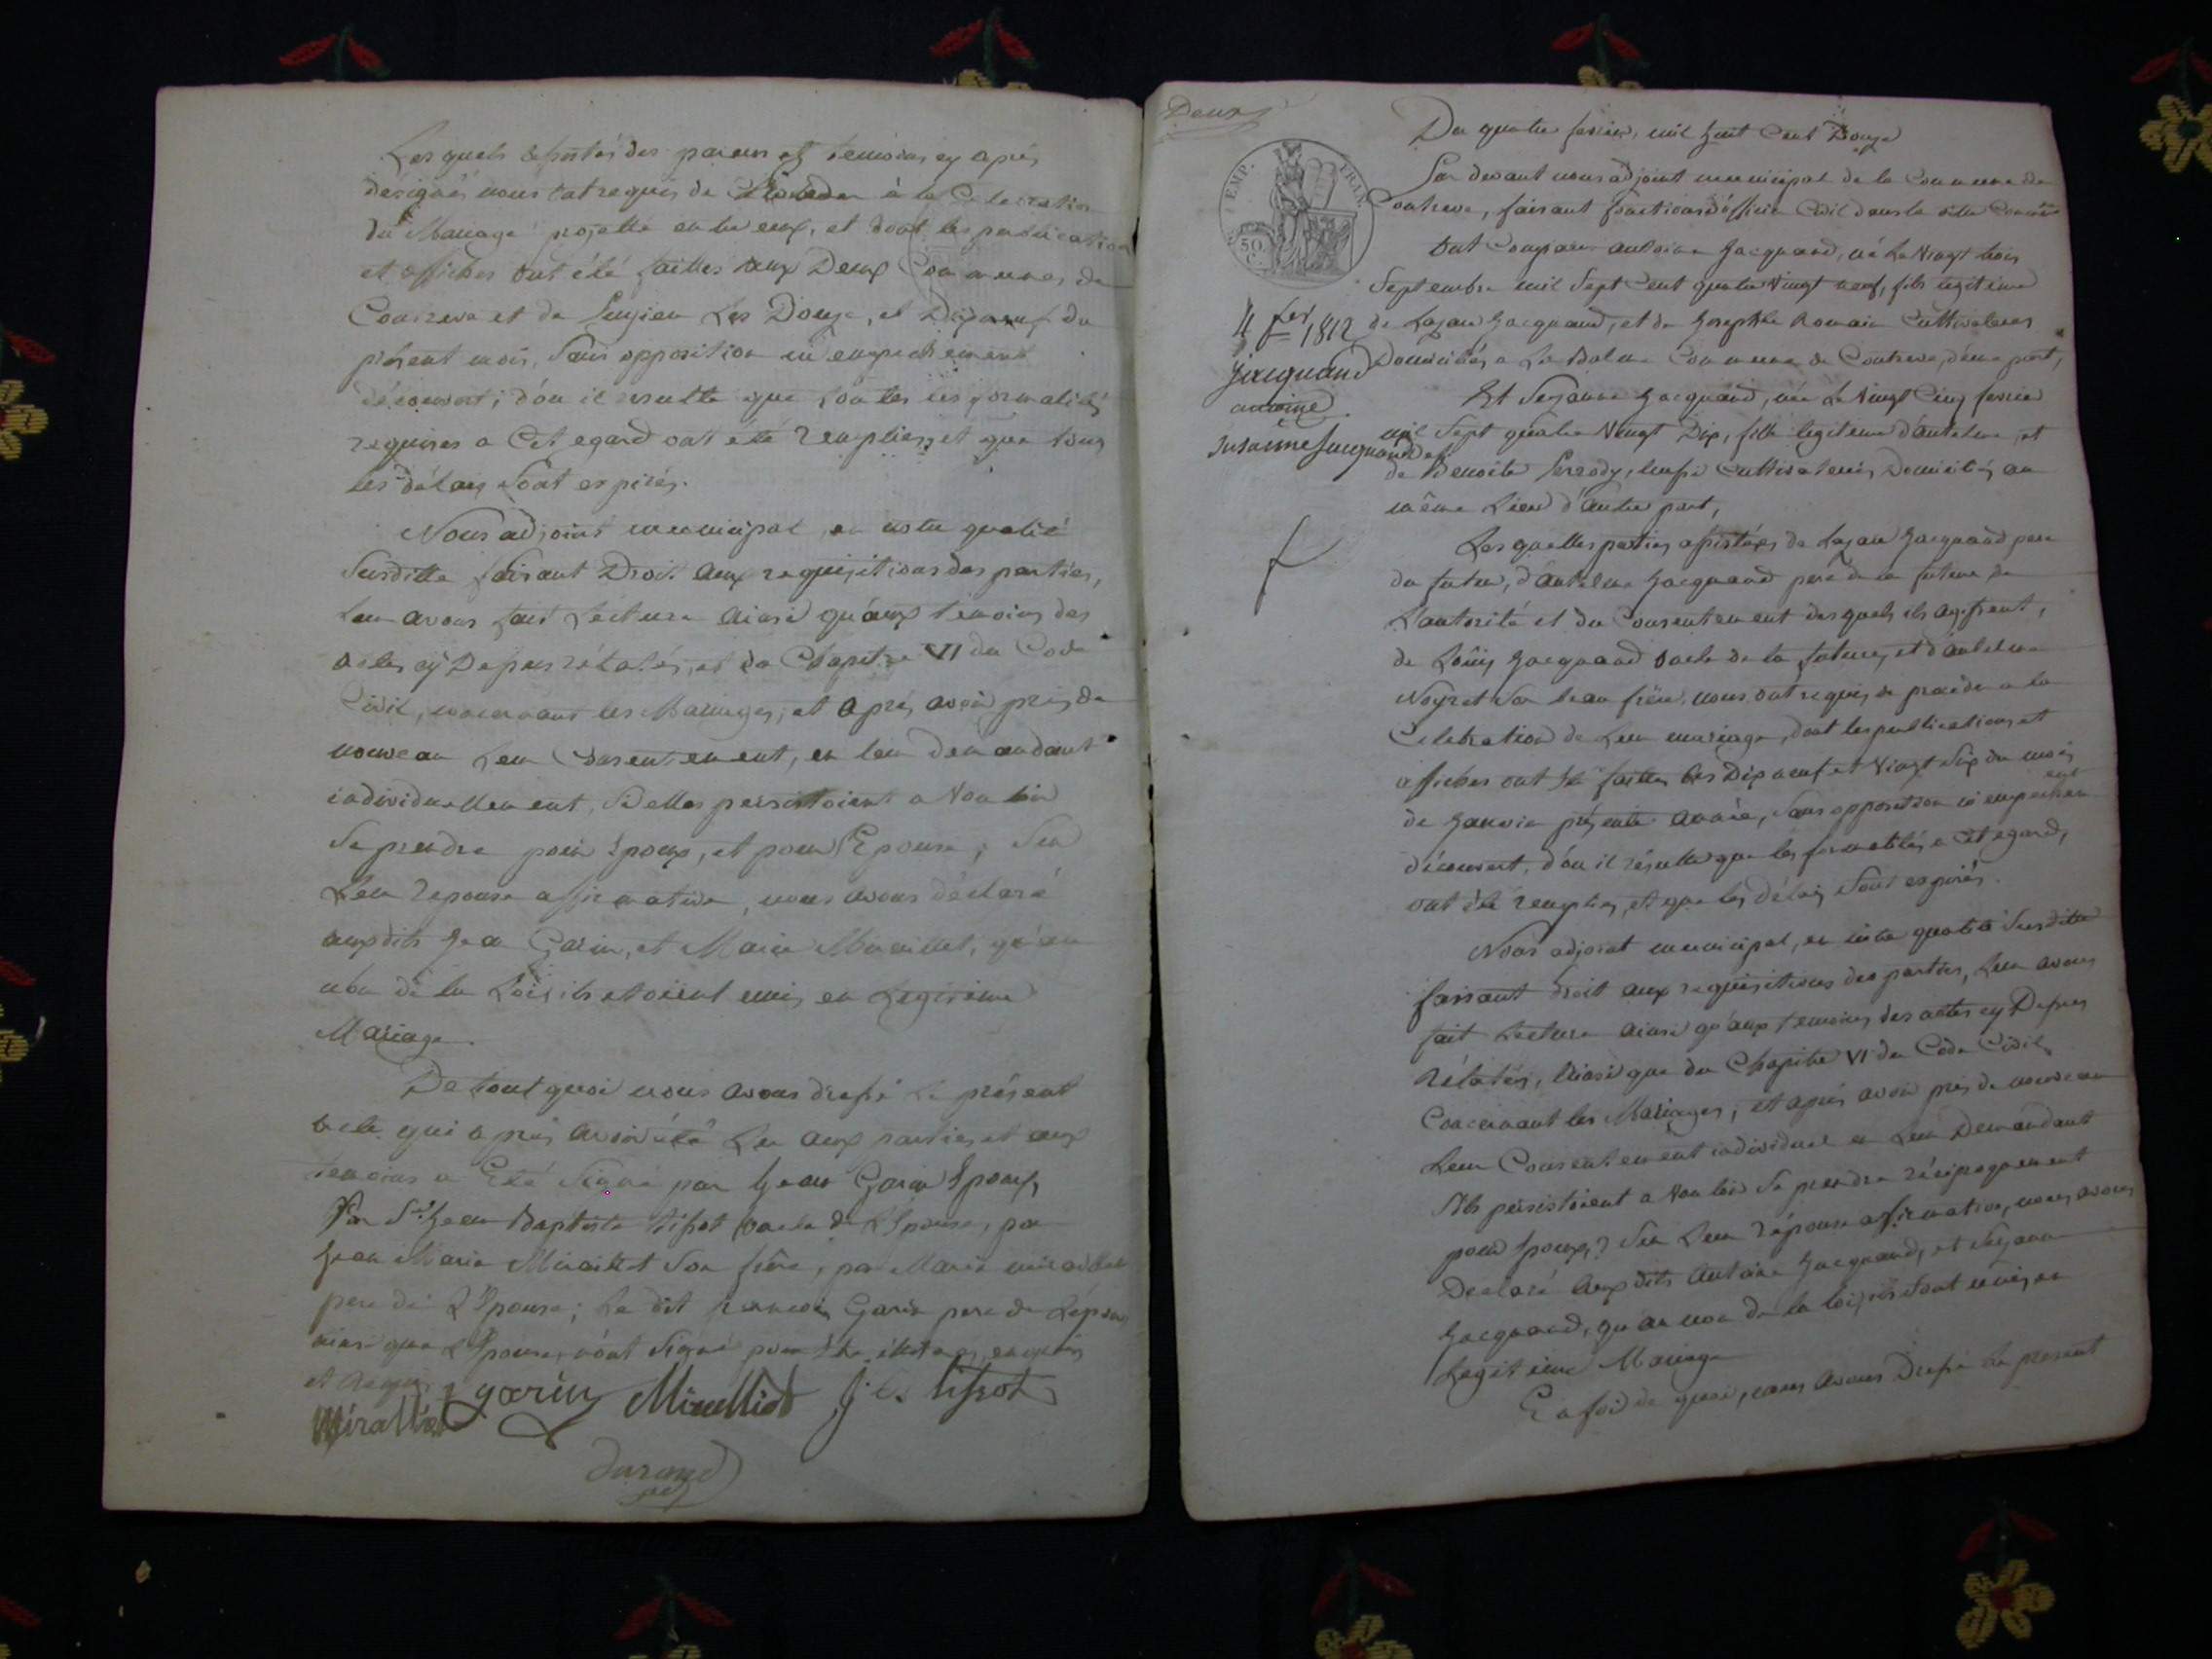 Les quels assistés des parens et temoins cy après
designés nous ont requis de Proceder à la Celebration
du Mariage projetté entre eux, et dont les publications
et affiches ont été faittes aux Deux Communes de
Contrevoz et de Pugieu Les Douze, et Dixneuf du
présent mois, sans opposition ni empechement
découvert; d'ou il resulte que toutes les formalités
requises a Cet egard ont été remplies, et que tous
les délais sont expirés.
Nous adjoint municipal en notre qualité
Susditte faisant Droit aux requisitions des parties,
Leur avons fait Lecture ainsi qu'aux temoins des
actes cy Dessus rélatés, et du Chapitre VI du Code
Civil, concernant les Mariages, et après avoir pris de
nouveau Leur Consentement, en leur demandant
individuellement, Si elles persistoient a Vouloir
Se prendre pour Epoux, et pour Epouse; Sur
Leur reponse affirmative, nous avons déclaré
auxdits Jean Garin, et Marie Miraillet, qu'au
nom de la Loi, ils etoient unis en Legitime
Mariage.
De tout quoi nous avons dressé Le présent
acte qui après avoir été Lu aux parties et aux
temoins a Eté Signé par Jean Garin Epoux,
Par Sr. Jean Baptiste tissot oncle de L'Epouse, par
Jean Marie Miraillet Son frère, par Marie miraillet
pere de L'Epouse; Le dit françois Garin pere de L'époux
ainsi que L'Epouse, n'ont Signé pour être illiterés, enquis
et requis
Miralliet garin Miralliet J. B. tissot
Durand
Deux
Du quatre fevrier, mil huit Cent Douze
EMP. FRAN.
50 C.
Par devant nous adjoint municipal de la Commune de
Contrevoz, faisant fonctions d'officier Civil dans la ditte Commune
Ont Comparu antoine Jacquand, né Le Vingt trois
Septembre mil Sept Cent quatre Vingt neuf, fils legitime
de Lazare Jacquand, et de Josephte Romain Cultivateurs
Domiciliés a La Balme Commune de Contrevoz, d'une part,
4 fer 1812
Jacquand
antoine
Susanne Jacquand
Et Suzanne Jacquand, née Le Vingt Cinq fevrier
mil Sept quatre Vingt Dix, fille legitime d'antelme, et
de Benoite Perrody, aussi Cultivateurs, Domiciliés au
même Lieu d'autre part,
Les quelles parties assistées de Lazare Jacquand pere
du futur, d'antelme Jacquand pere de la future de
L'autorité et du Consentement des quels ils agissent,
de Loüis Jacquand oncle de la future, et d'antelme
Noyret Son beau frère, nous ont requis de proceder a la
Celebration de Leur mariage, dont les publications et
affiches ont été faittes les Dix neuf et Vingt Six du mois
de Janvier présente année, Sans opposition ni empechement
découvert, d'ou il résulte que les formalités a cet egard,
ont été remplies, et que les délais Sont expirés.
Nous adjoint municipal, en notre qualité Susditte
faisant droit aux requisitions des parties, Leur avons
fait Lecture ainsi qu'aux temoins des actes cy Dessus
rélatés, ainsi que du Chapitre VI du Code Civil,
Concernant les Mariages, et après avoir pris de nouveau
Leur Consentement individuel en Leur Demandant
S'ils persistoient a Vouloir Se prendre réciproquement
pour Epoux,? Sur Leur réponse affirmative, nous avons
Declaré auxdits Antoine Jacquand, et Suzanne
Jacquand, qu'au nom de la loi, ils Sont unis en
Legitime Mariage
En foi de quoi, nous avons Dressé Le présent